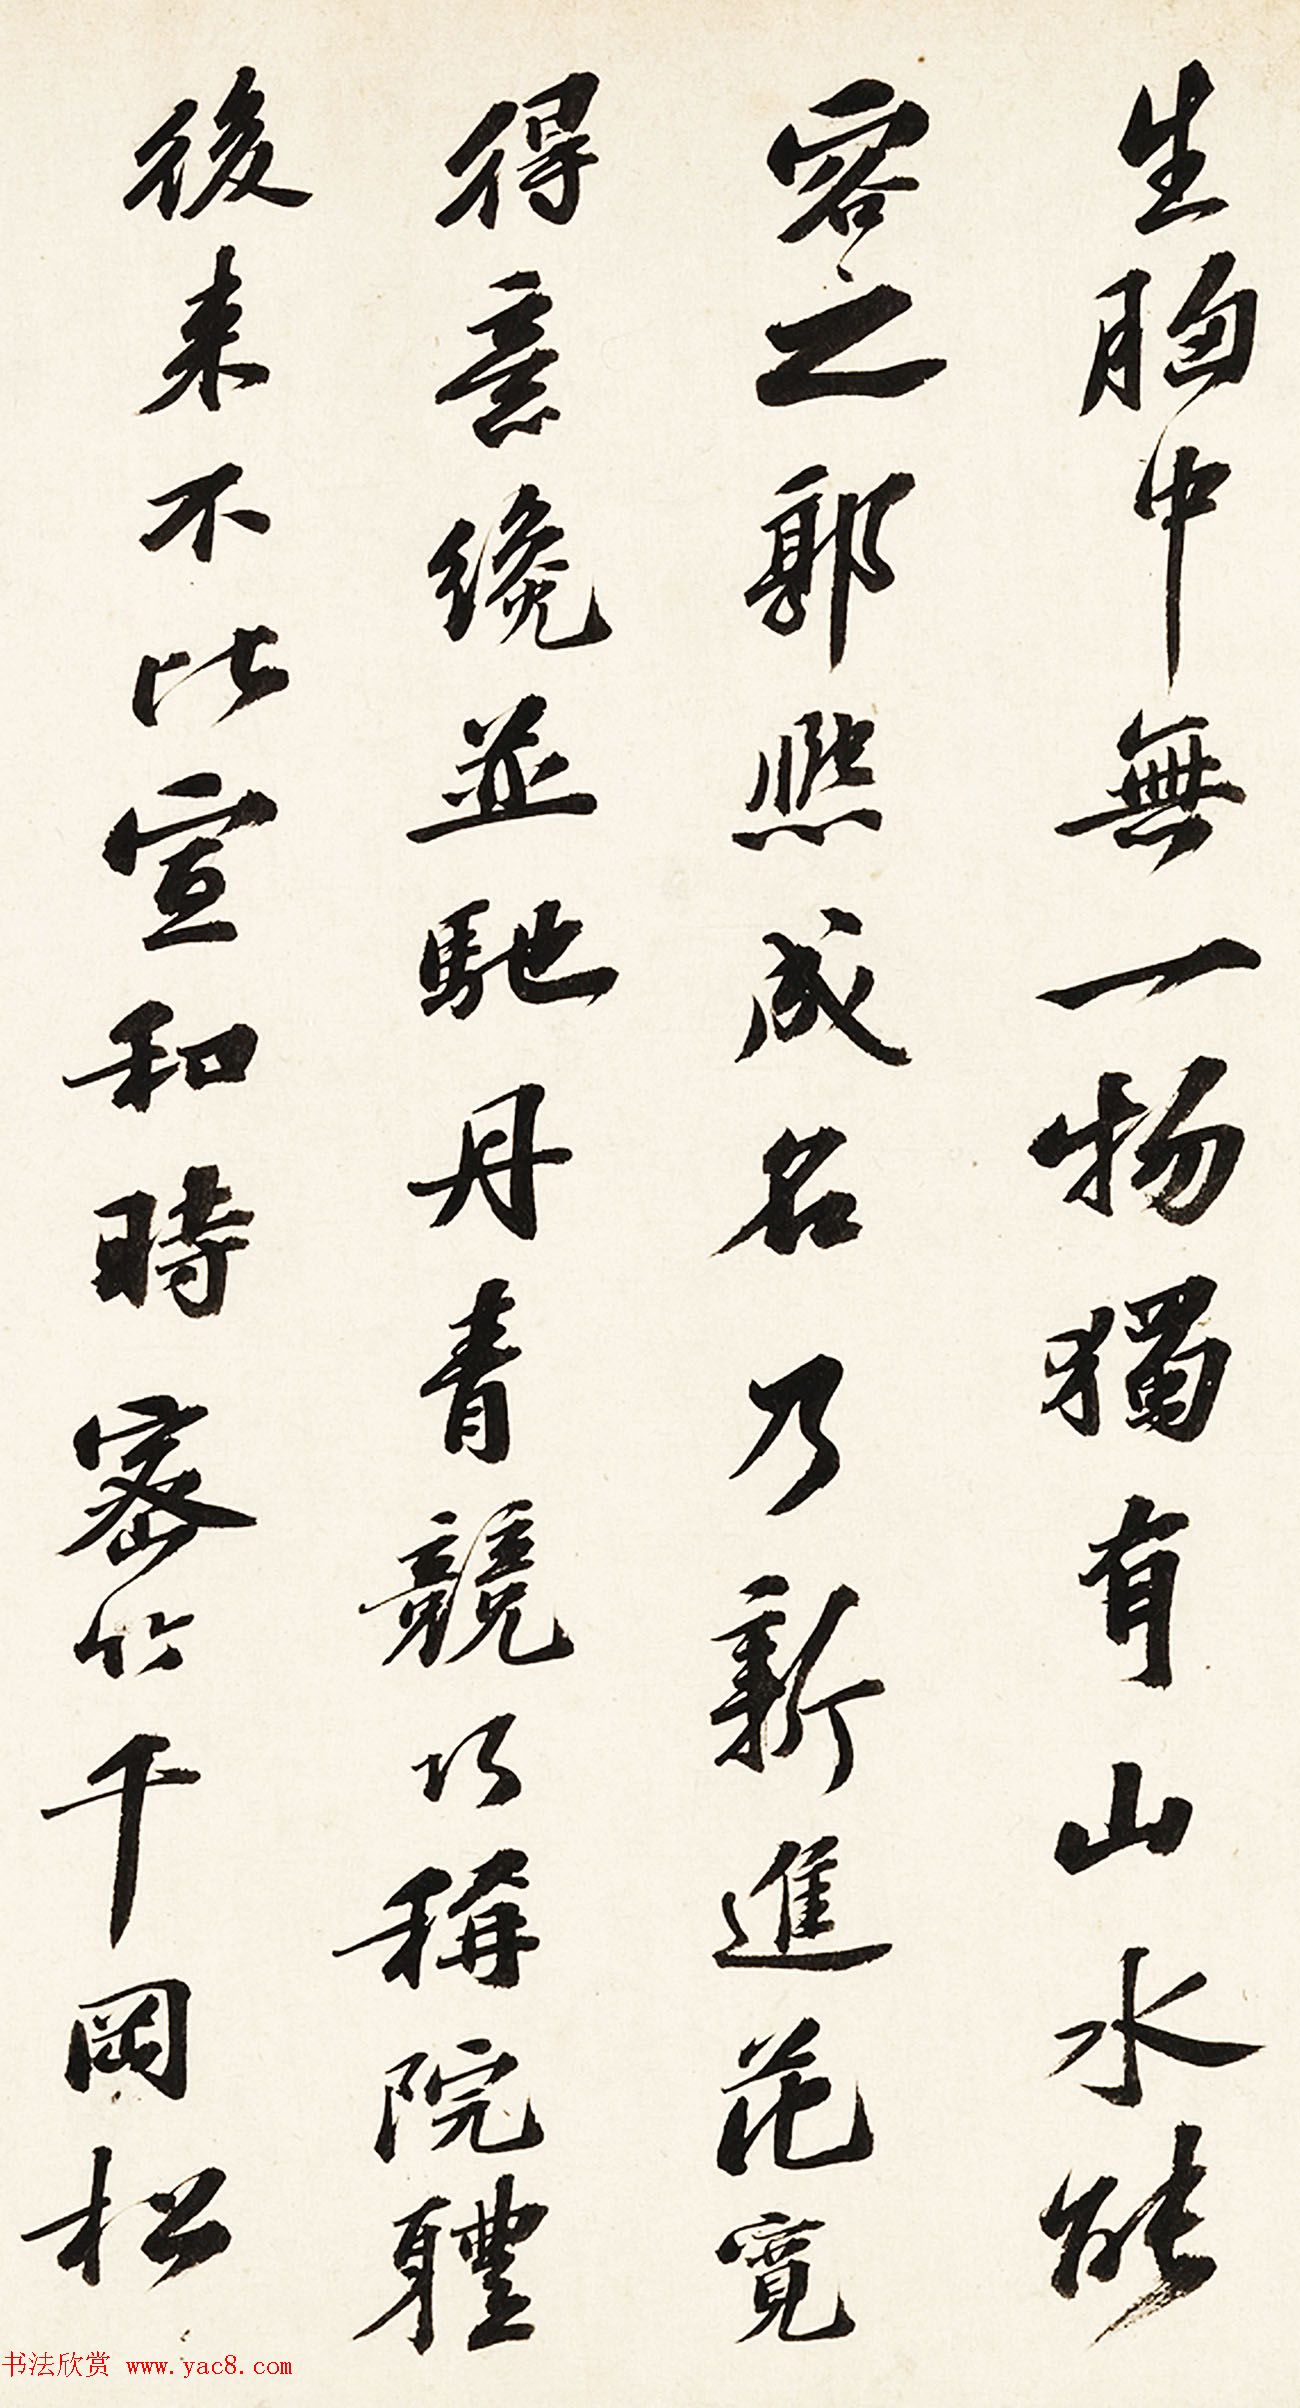 生胸中無一物獨有山水能
容之郭熙成名乃新進花寬
得意纔並馳丹青競巧稱院體
後來不比宣和時密竹千岡松
书法欣赏 www.yac8.com